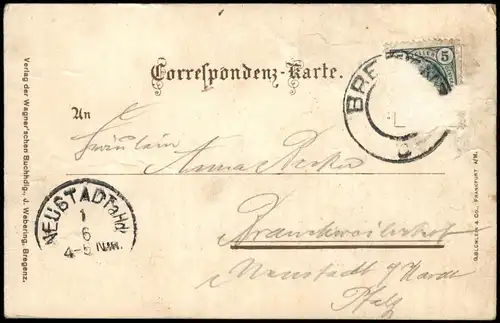 Correspondenz-Karte.
An
Fräulein
Anna
Branchweilerhof
Neustadt a/ Hardt
Pfalz
BRE
5
NEUSTADT a. Hdt.
1
6
4-5 NM.
Verlag der Wagner'schen Buchhdlg., J. Webering, Bregenz.
G. BLÜMLEIN & CO., FRANKFURT A/M.